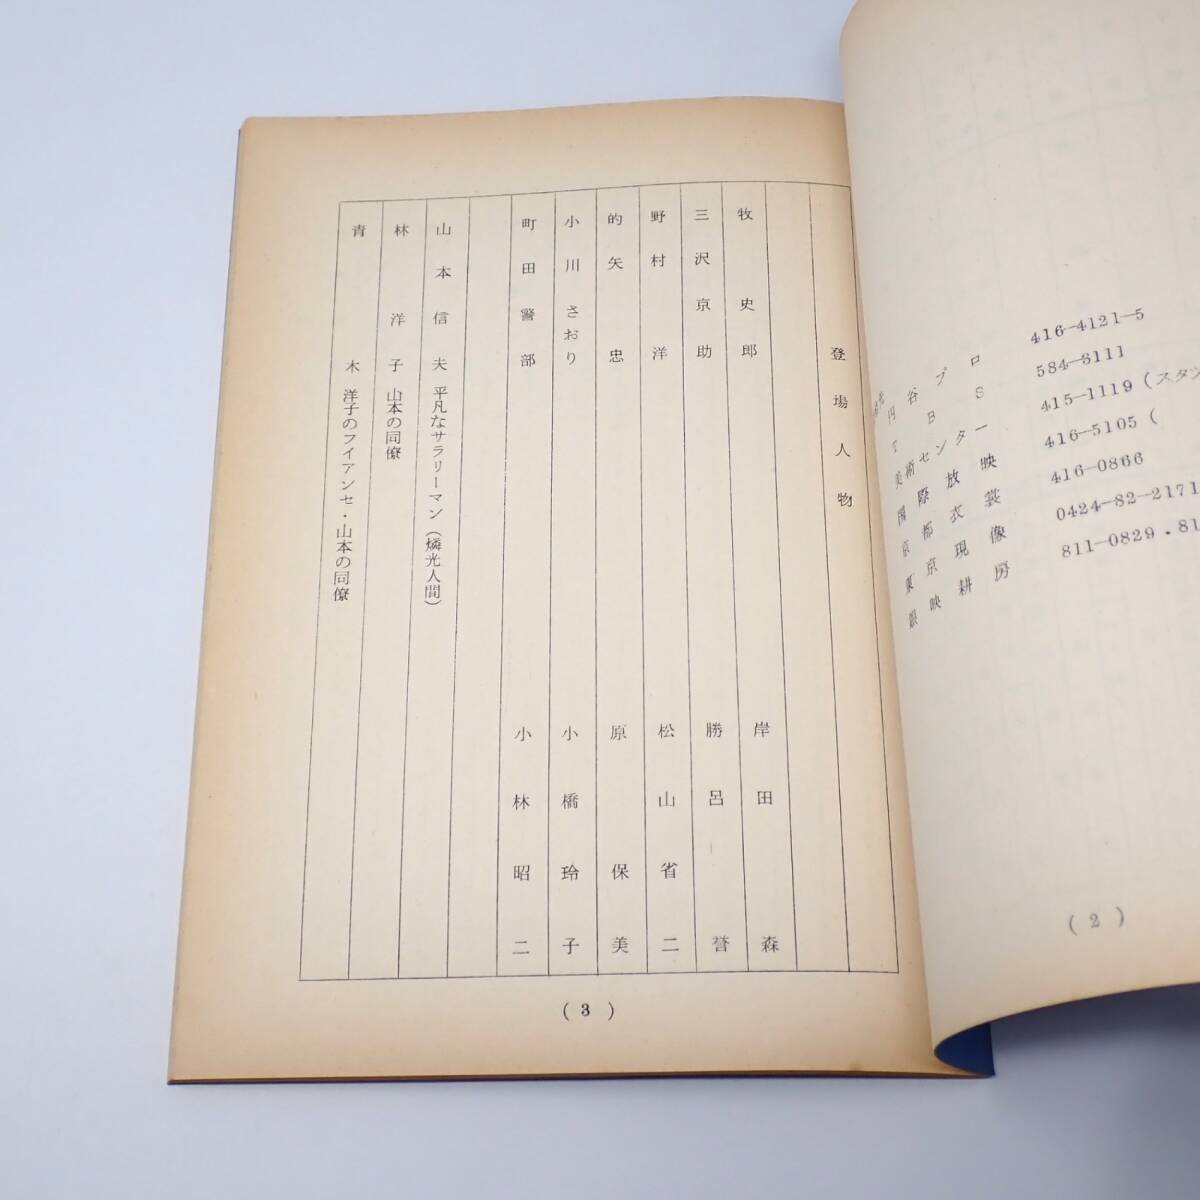 円谷プロ 416-4121-5
TBS 584-3111
美術センター 415-1119(スタン
国際放映 416-5105(
京都衣裳 416-0866
東京現像 0424-82-2171
銀映耕房 811-0829・81
(2)
登場人物
牧史郎 岸田森
三沢京助 勝呂誉
野村洋 松山省二
的矢忠 原保美
小川さおり 小橋玲子
町田警部 小林昭二
山本信夫 平凡なサラリーマン(燐光人間)
林洋子 山本の同僚
青木 洋子のフイアンセ・山本の同僚
(3)